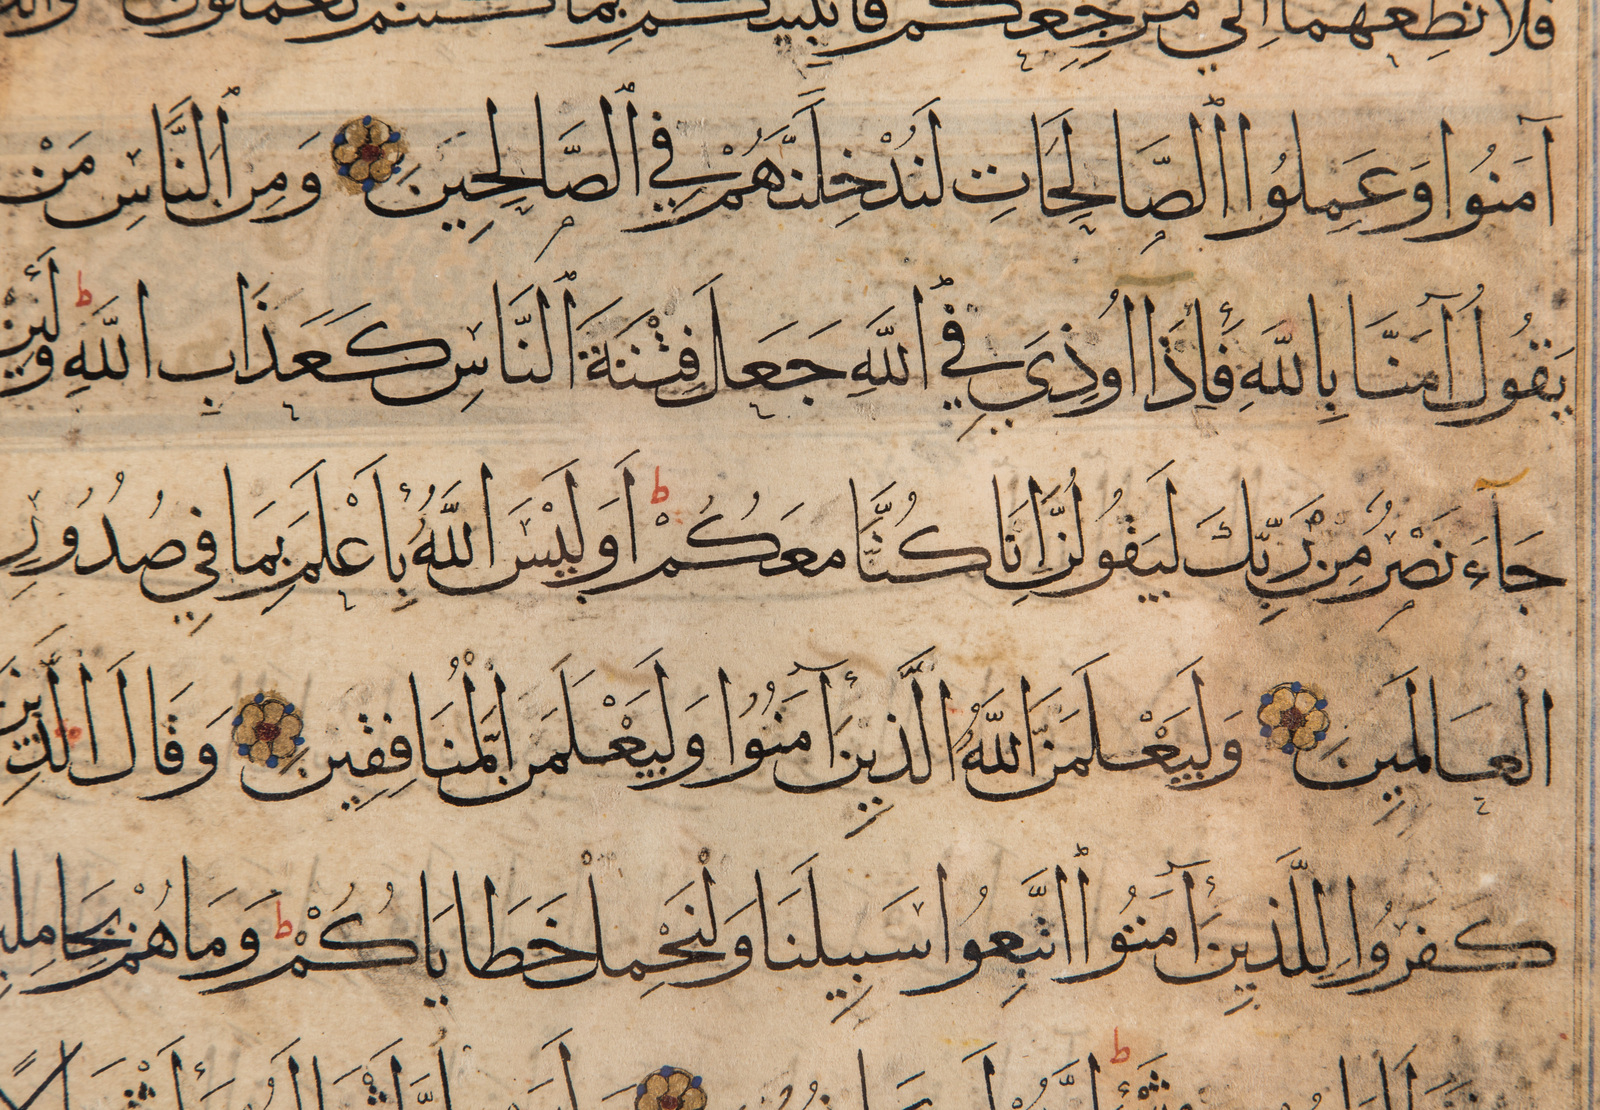 فلا تطعهما الي مرجعكم فانبيكم بما كنتم تعملون
آمَنُوا وَعَمِلُوا الصَّالِحَاتِ لَنُدْخِلَنَّهُمْ فِي الصَّالِحِينَ وَمِنَ النَّاسِ مَنْ
يَقُولُ آمَنَّا بِاللَّهِ فَإِذَا اُوذِيَ فِي اللَّهِ جَعَلَ فِتْنَةَ النَّاسِ كَعَذَابِ اللَّهِ ط وَلَئِنْ
جَاءَ نَصْرٌ مِنْ رَبِّكَ لَيَقُولُنَّ اِنَّا كُنَّا مَعَكُمْ ط اَوَلَيْسَ اللَّهُ بِأَعْلَمَ بِمَا فِي صُدُورِ
الْعَالَمِينَ وَلَيَعْلَمَنَّ اللَّهُ الَّذِينَ آمَنُوا وَلَيَعْلَمَنَّ الْمُنَافِقِينَ وَقَالَ الَّذِينَ
كَفَرُوا لِلَّذِينَ آمَنُوا اتَّبِعُوا سَبِيلَنَا وَلْنَحْمِلْ خَطَايَاكُمْ ط وَمَا هُمْ بِحَامِلِينَ